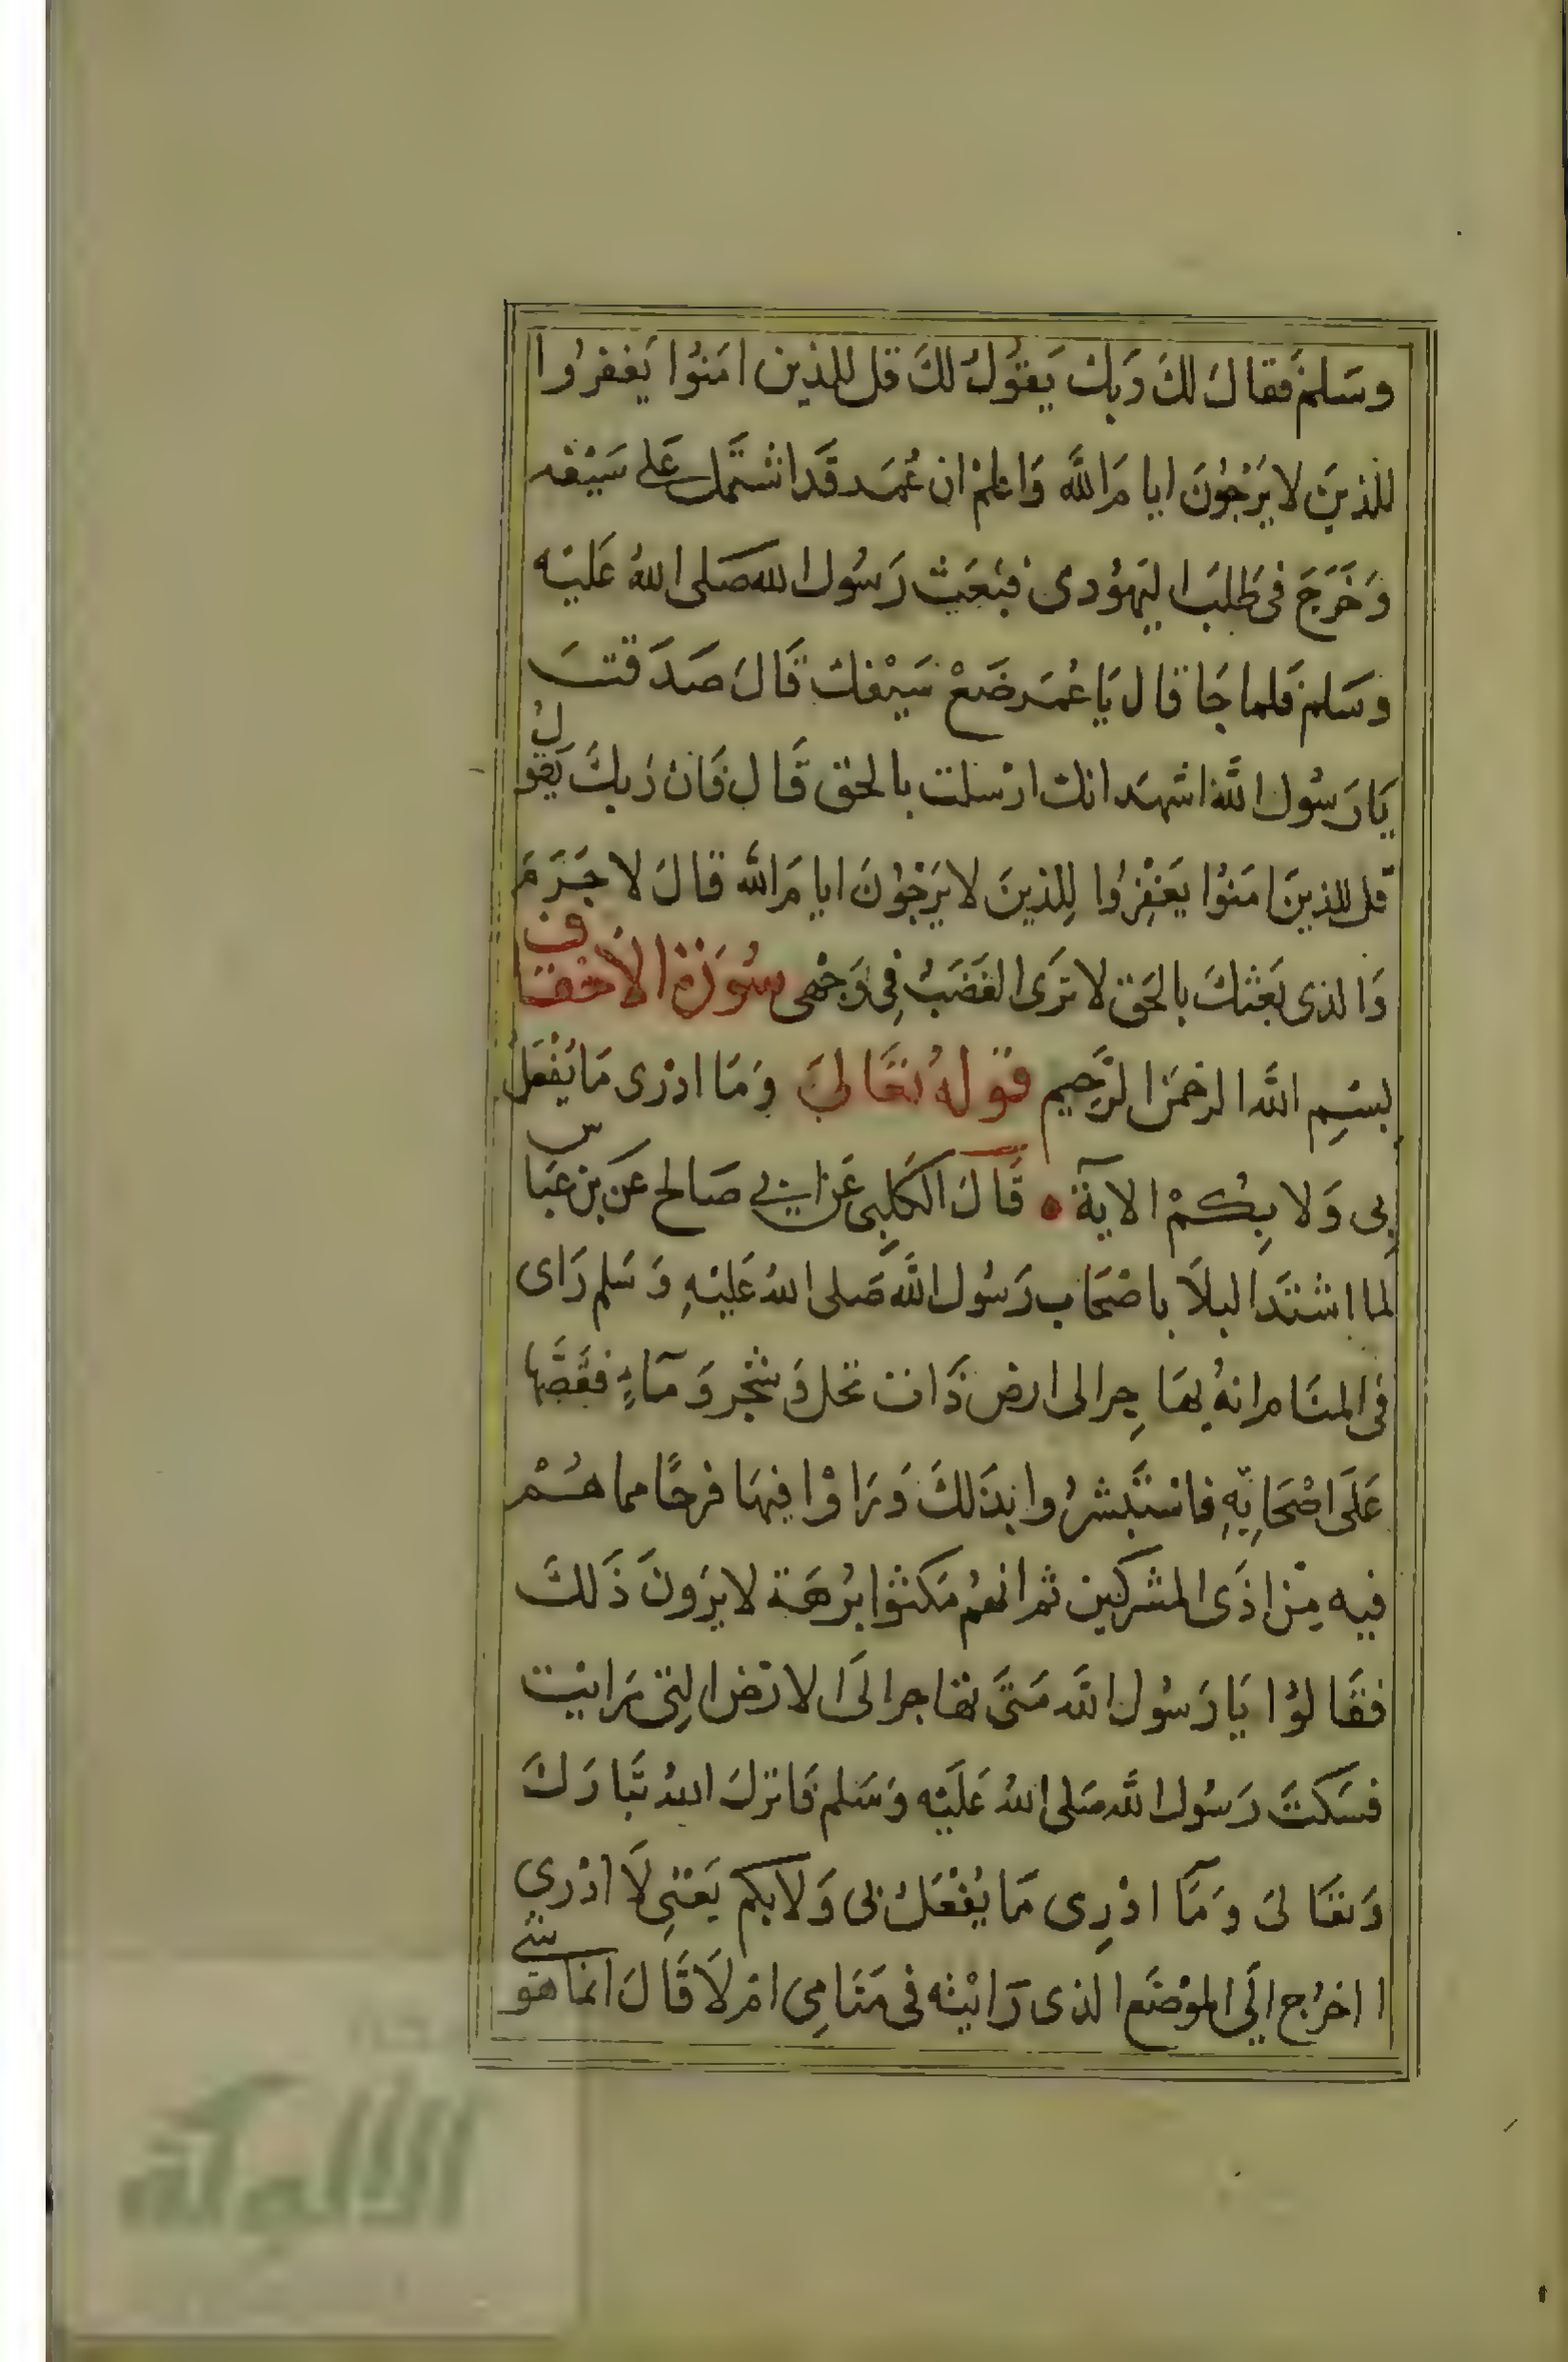 وسَلم فقال لكَ رَبك يَقولُ لكَ قل للذين امَنُوا يَغفرُوا
للذينَ لا يَرْجُونَ ايامَ اللَّه وَاعلمْ ان عُمَر قَد اشتَمل عَلى سَيْفه
وَخَرَجَ فى طَلبَ اليَهُودى فبَعَث رَسُول الله صَلى اللهُ عَليْه
وسَلم فَلما جَا قال يَا عُمَر ضَعْ سَيْفك قَالَ صَدَقتَ
يَا رَسُول اللَّه اشهَد انك ارْسلت بالحق قَال فَان رَبكَ يَقولُ
قل للذينَ امَنوُا يَغْفِرُوا لِلذينَ لا يَرْجوُنَ ايامَ اللَّه قالَ لا جَرَمَ
وَالذى بَعثكَ بالحَق لا تَرَى الغَضَبُ فِى وَجْهى سُورَة الأحقاف
بسْمِ اللَّه الرحمَن الرَّحِيم قوله تعَالىَ وَمَا ادْرى مَا يُفْعَلُ
بى وَلا بِكُمْ الآيَة قَالَ الكَلبِى عَن ابي صَالح عَن بن عَباس
لما اشتَدَ البلاَ باصْحَاب رَسُول اللَّه صَلى اللهُ عَليْهِ وَسَلم رَاى
فى المنَام انهُ يهَاجِر الى ارض ذَات نخل وَشجر وَمَآءٍ فقَصَّها
عَلَى اصْحَابِهِ فاستَبشرُوا بذَلكَ وَرَاوْا فيهَا فرحًا مما هُمْ
فيه مِنْ اذَى المشركين ثم انهمُ مَكثوُا برُهَة لا يرَونَ ذَلكَ
فقَالوُا يَا رَسُول اللَّه مَتىَ نهَاجر الَى الارْض التِى رَايْت
فسَكتَ رَسُول اللَّه صَلى اللهُ عَلَيْه وَسَلم فَانزلَ اللهُ تَبَارَكَ
وَتعَالىَ وَمَآ ادْرِى مَا يُفْعَلُ بى وَلا بكم يَعْنىِ لَا ادْرى
ااخرُج الَى الموْضَع الذى رَايْته فى مَنَامِى امْ لَا قَالَ انما هو شى
الألوكة